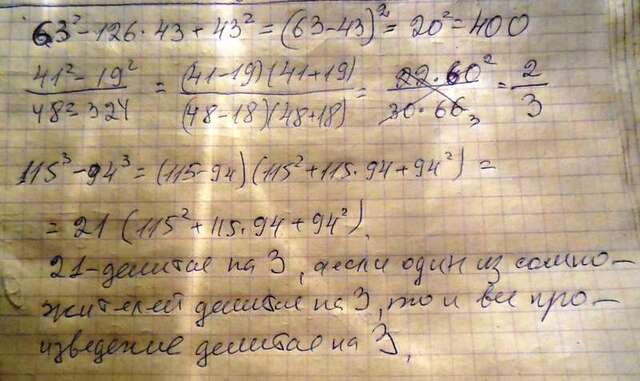 63² - 126 · 43 + 43² = (63 - 43)² = 20² = 400
41² - 19² / 48² - 324 = (41 - 19)(41 + 19) / (48 - 18)(48 + 18) = 22 · 60² / 30 · 66₃ = 2/3
115³ - 94³ = (115 - 94)(115² + 115 · 94 + 94²) =
= 21 (115² + 115 · 94 + 94²),
21 - делится на 3, а если один из сомно-
жителей делится на 3, то и все про-
изведение делится на 3,